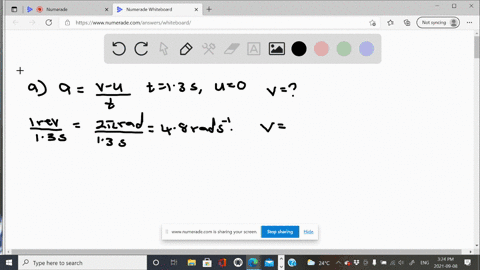 Numerade
Numerade Whiteboard
https://www.numerade.com/answers/whiteboard/
Not syncing
a) a = v-u / t t=1.3s, u=0 v=?
1rev / 1.3s = 2πrad / 1.3s = 4.8rads⁻¹. v=
www.numerade.com is sharing your screen.
Stop sharing
Hide
Type here to search
24°C
ENG
3:24 PM
2021-06-06